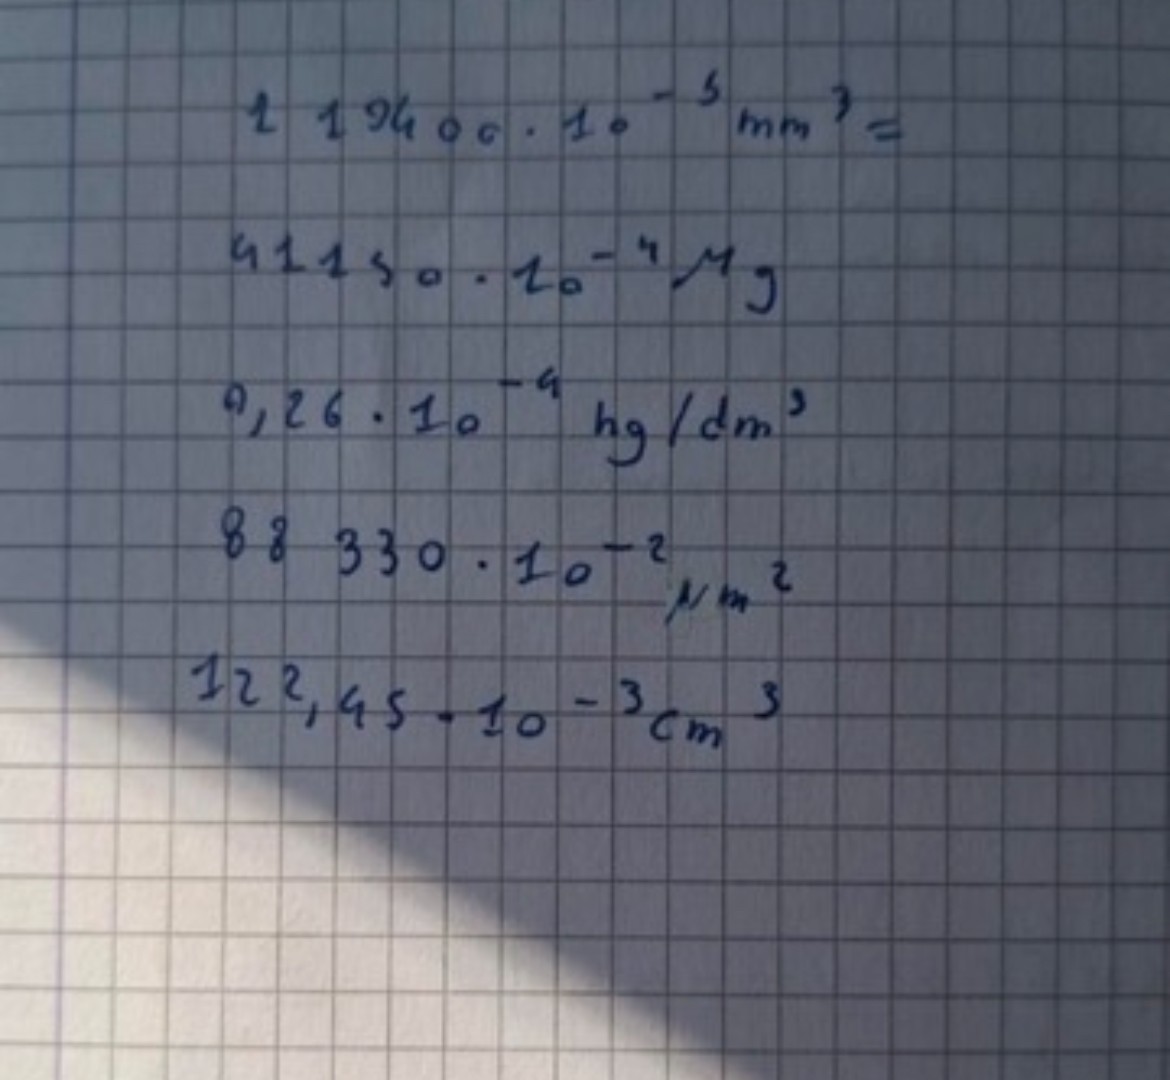 1 19400 · 10⁻⁵ mm³ =
41150 · 10⁻⁴ Mg
0,26 · 10⁻⁴ hg/dm³
88 330 · 10⁻² μm²
122,45 · 10⁻³ cm³